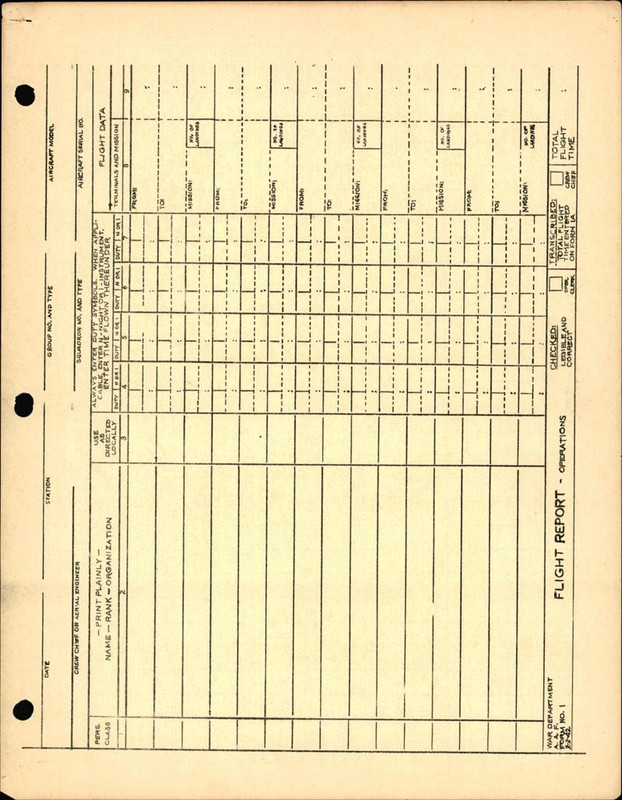 DATE STATION GROUP NO. AND TYPE AIRCRAFT MODEL
CREW CHIEF OR AERIAL ENGINEER SQUADRON NO. AND TYPE AIRCRAFT SERIAL NO.
PERS. CLASS
— PRINT PLAINLY —
NAME — RANK — ORGANIZATION
2
USE
AS
DIRECTED
LOCALLY
3
ALWAYS ENTER DUTY SYMBOLS. WHEN APPLI-
CABLE, ENTER N-NIGHT OR I-INSTRUMENT.
ENTER TIME FLOWN THEREUNDER
DUTY N OR I DUTY N OR I DUTY N OR I DUTY N OR I
4 5 6 7
FLIGHT DATA
TERMINALS AND MISSION
8 9
FROM:
TO:
MISSION: NO. OF LANDINGS
FROM:
TO:
MISSION: NO. OF LANDINGS
FROM:
TO:
MISSION: NO. OF LANDINGS
FROM:
TO:
MISSION: NO. OF LANDINGS
FROM:
TO:
MISSION: NO. OF LANDINGS
WAR DEPARTMENT
A. A. F.
FORM NO. 1
FLIGHT REPORT - OPERATIONS
CHECKED:
LEGIBLE AND
CORRECT
OPER. CLERK
TRANSCRIBED:
TOTAL FLIGHT
TIME ENTERED
ON FORM 1A
CREW CHIEF
TOTAL
FLIGHT
TIME